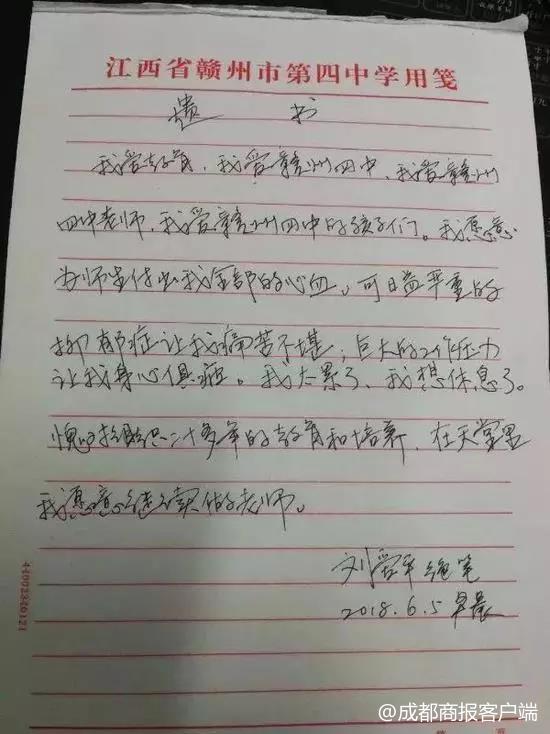 江西省赣州市第四中学用笺
遗 书
我爱教育，我爱赣州四中，我爱赣州
四中老师，我爱赣州四中的孩子们。我愿意
为师生付出我全部的心血。可日益严重的
抑郁症让我痛苦不堪；巨大的工作压力
让我身心俱疲。我太累了，我想休息了。
愧对组织二十多年的教育和培养，在天堂里
我愿意继续做老师。
刘爱平绝笔
2018.6.5早晨
44002346121
@成都商报客户端